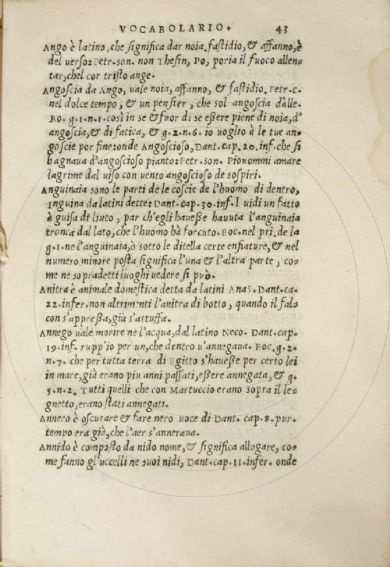 VOCABOLARIO. 43
Ango è latino, che significa dar noia, fastidio, & affanno, è
del uerso: Petr. son. non Thesin, Po, poria il fuoco allen-
tar, chel cor tristo ange.
Angoscia da Ango, uale noia, affanno, & fastidio. Petr. c.
nel dolce tempo, & un pensier, che sol angoscia dalle.
BO. g. 1. n. 1. così in se & fuor di se eßere piene di noia, d'
angoscia, & di fatica, & g. 2. n. 6. io uoglio à le tue an-
goscie por fine: onde Angoscioso, Dant. cap. 20. inf. che si
bagnaua d'angoscioso pianto: Petr. son. Piouonmi amare
lagrime dal uiso con uento angoscioso de sospiri.
Anguinaia sono le parti de le coscie de l'huomo di dentro,
inguina da latini dette: Dant. cap. 30. inf. I uidi un fatto
à guisa di liuto, pur ch'egli haueße hauuta l'anguinaia
tronca dal lato, che l'huomo hà forcuto. BOC. nel pri, de la
g. 1. ne l'anguinaia, ò sotto le ditella certe enfiature, & nel
numero minore posta significa l'una & l'altra parte, co-
me ne sopradetti luoghi uedere si può.
Anitra è animale domestica detta da latini Anas. Dant. ca.
22. infer. non altrimenti l'anitra di botto, quando il falcon
con s'appreßa, giù s'attuffa.
Annego uale morire ne l'acqua, dal latino Neco. Dant. cap.
19. inf. rupp'io per un, che dentro u'annegaua. BOC. g. 2.
n. 7. che per tutta terra di Egitto s'haueße per certo lei
in mare, già erano piu anni paßati, eßere annegata, & g.
5. n. 2. Tutti quelli che con Martuccio erano sopra il le-
gnetto, erano stati annegati.
Annero è oscurare & fare nero uoce di Dant. cap. 8. pur.
tempo era già, che l'aer s'anneraua.
Annido è composto da nido nome, & significa allogare, co-
me fanno gl'uccelli ne suoi nidi, Dant. cap. 11. infer. onde